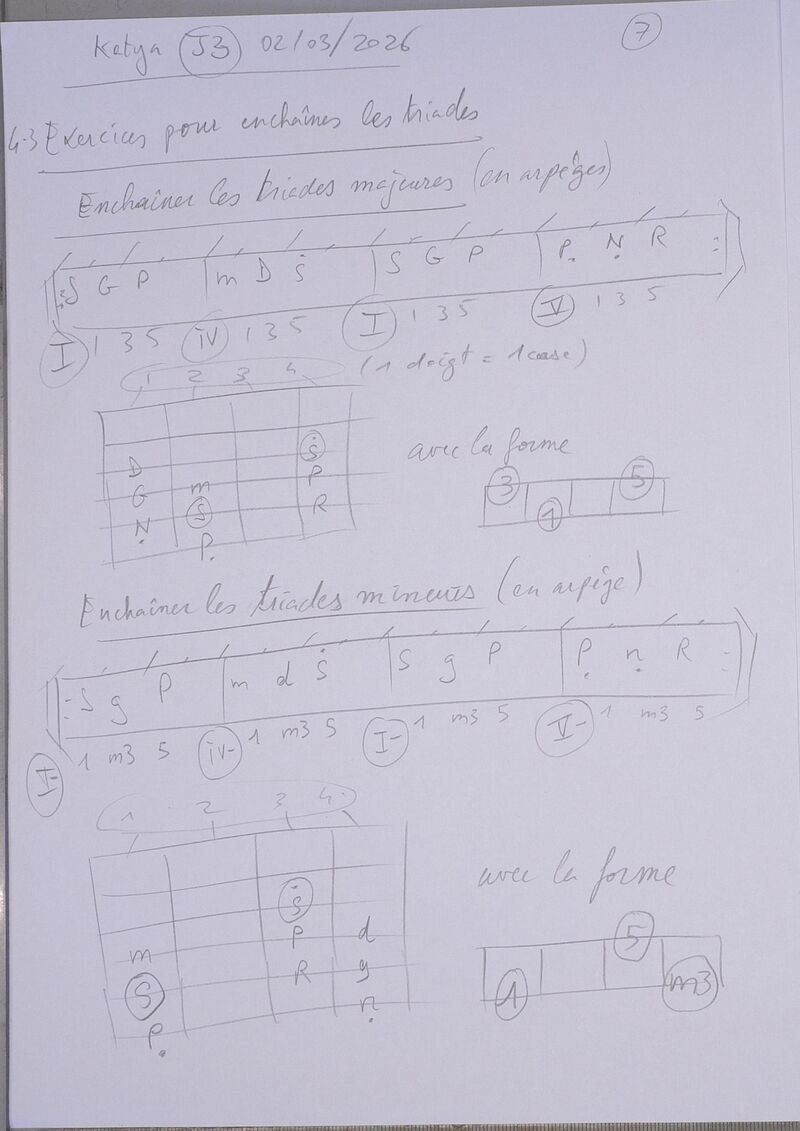 Katya J3 02/03/2026 7
4.3 Exercices pour enchaîner les triades
Enchaîner les triades majeures (en arpèges)
: S G P | m D Ṡ | S G P | P. Ṇ R :
I 1 3 5 iv 1 3 5 I 1 3 5 V 1 3 5
1 2 3 4 (1 doigt = 1 case)
avec la forme
Ṡ
D P
G m
S R
Ṇ
P.
3 5
1
Enchaîner les triades mineures (en arpège)
: S g P | m d Ṡ | S g P | P. ṇ R :
I- 1 m3 5 iv- 1 m3 5 I- 1 m3 5 V- 1 m3 5
1 2 3 4
avec la forme
Ṡ
P d
m R g
S ṇ
P.
5
1 m3